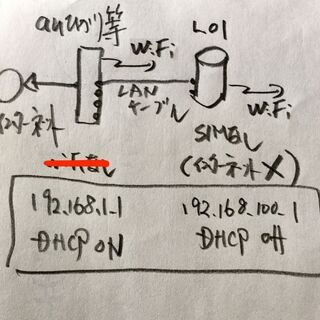 auひかり等
L01
WiFi
LAN
ケーブル
WiFi
インターネット
SIM無し
(インターネット×)
192.168.1.1
192.168.100.1
DHCP ON
DHCP off